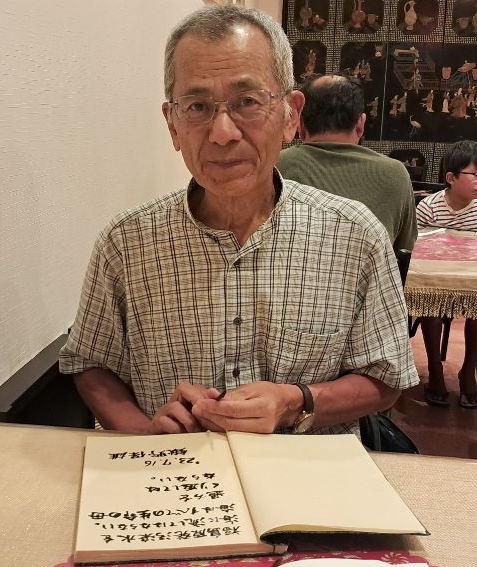 福島原発汚染水を
海に流してはならない。
海はすべての生命の母
過ちを
くり返しては
ならない。
'23.7.16